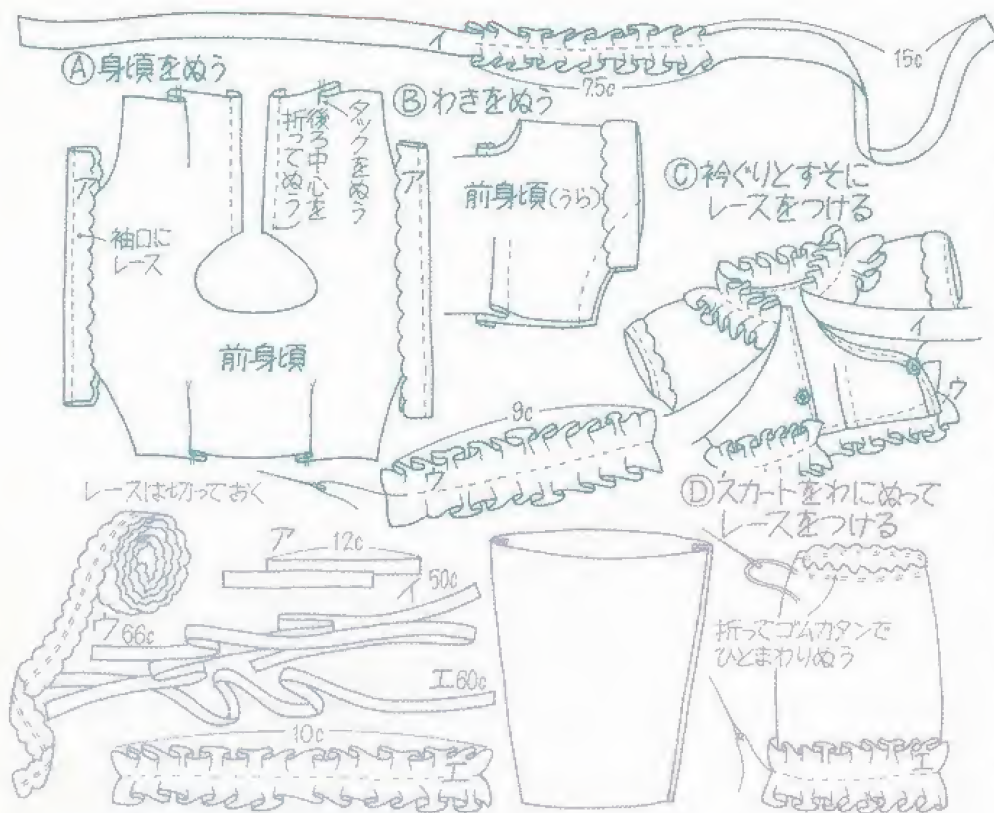 イ
7.5c
15c
Ⓐ身頃をぬう
ア
袖口に
レース
タックをぬう
後ろ中心を
折ってぬう
ア
前身頃
Ⓑわきをぬう
前身頃(うら)
Ⓒ衿ぐりとすそに
レースをつける
イ
ウ
9c
ウ
レースは切っておく
ア
12c
イ
50c
ウ 66c
エ60c
10c
エ
Ⓓスカートをわにぬって
レースをつける
折ってゴムカタンで
ひとまわりぬう
エ